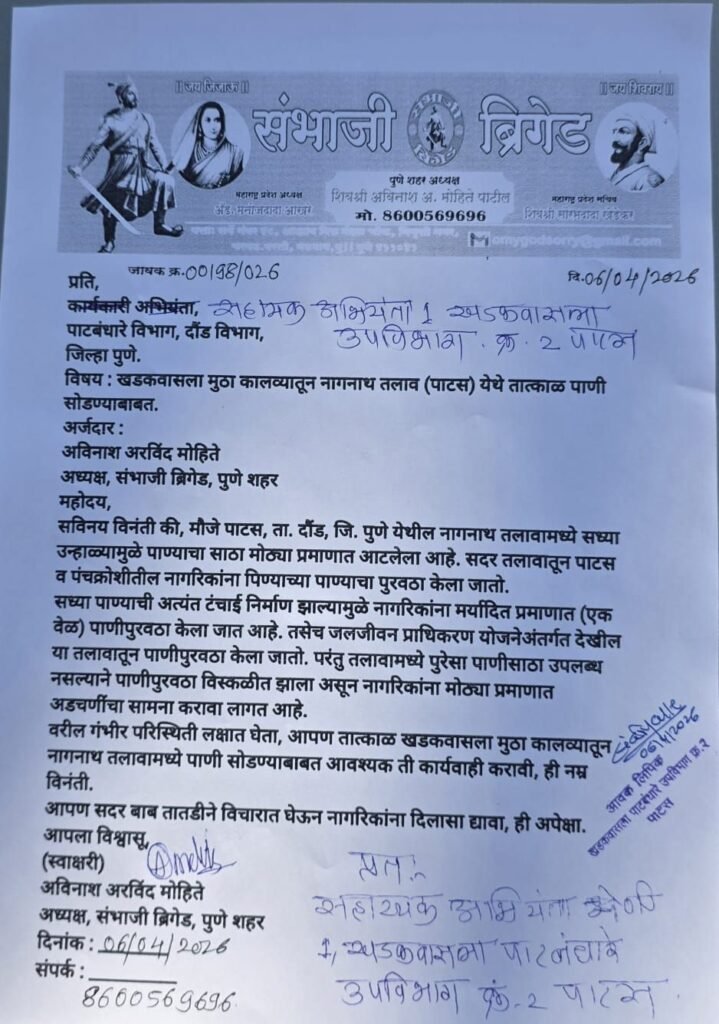 || जय जिजाऊ ||
|| जय शिवराय ||
संभाजी ब्रिगेड
पुणे शहर अध्यक्ष
शिवश्री अविनाश अ. मोहिते पाटील
मो. 8600569696
महाराष्ट्र प्रदेश अध्यक्ष
अॅड. मनोजदादा आखरे
महाराष्ट्र प्रदेश सचिव
शिवश्री सौरभदादा खेडेकर
omygodsorry@gmail.com
जावक क्र.00198/026
दि.06/04/2026
प्रति,
कार्यकारी अभियंता, सहायक अभियंता 1 खडकवासला
पाटबंधारे विभाग, दौंड विभाग, उपविभाग क्रं. 2 पाटस
जिल्हा पुणे.
विषय : खडकवासला मुठा कालव्यातून नागनाथ तलाव (पाटस) येथे तात्काळ पाणी
सोडण्याबाबत.
अर्जदार :
अविनाश अरविंद मोहिते
अध्यक्ष, संभाजी ब्रिगेड, पुणे शहर
महोदय,
सविनय विनंती की, मौजे पाटस, ता. दौंड, जि. पुणे येथील नागनाथ तलावामध्ये सध्या
उन्हाळ्यामुळे पाण्याचा साठा मोठ्या प्रमाणात आटलेला आहे. सदर तलावातून पाटस
व पंचक्रोशीतील नागरिकांना पिण्याच्या पाण्याचा पुरवठा केला जातो.
सध्या पाण्याची अत्यंत टंचाई निर्माण झाल्यामुळे नागरिकांना मर्यादित प्रमाणात (एक
वेळ) पाणीपुरवठा केला जात आहे. तसेच जलजीवन प्राधिकरण योजनेअंतर्गत देखील
या तलावातून पाणीपुरवठा केला जातो. परंतु तलावामध्ये पुरेसा पाणीसाठा उपलब्ध
नसल्याने पाणीपुरवठा विस्कळीत झाला असून नागरिकांना मोठ्या प्रमाणात
अडचणींचा सामना करावा लागत आहे.
वरील गंभीर परिस्थिती लक्षात घेता, आपण तात्काळ खडकवासला मुठा कालव्यातून
नागनाथ तलावामध्ये पाणी सोडण्याबाबत आवश्यक ती कार्यवाही करावी, ही नम्र
विनंती.
आपण सदर बाब तातडीने विचारात घेऊन नागरिकांना दिलासा द्यावा, ही अपेक्षा.
06/4/2026
आवक लिपिक
खडकवासला पाटबंधारे उपविभाग क्र.२
पाटस
आपला विश्वासू,
(स्वाक्षरी)
अविनाश अरविंद मोहिते
अध्यक्ष, संभाजी ब्रिगेड, पुणे शहर
दिनांक : 06/04/2026
संपर्क :
8600569696
प्रत:
सहाय्यक अभियंता श्रेणी
1, खडकवासला पाटबंधारे
उपविभाग क्रं. 2 पाटस